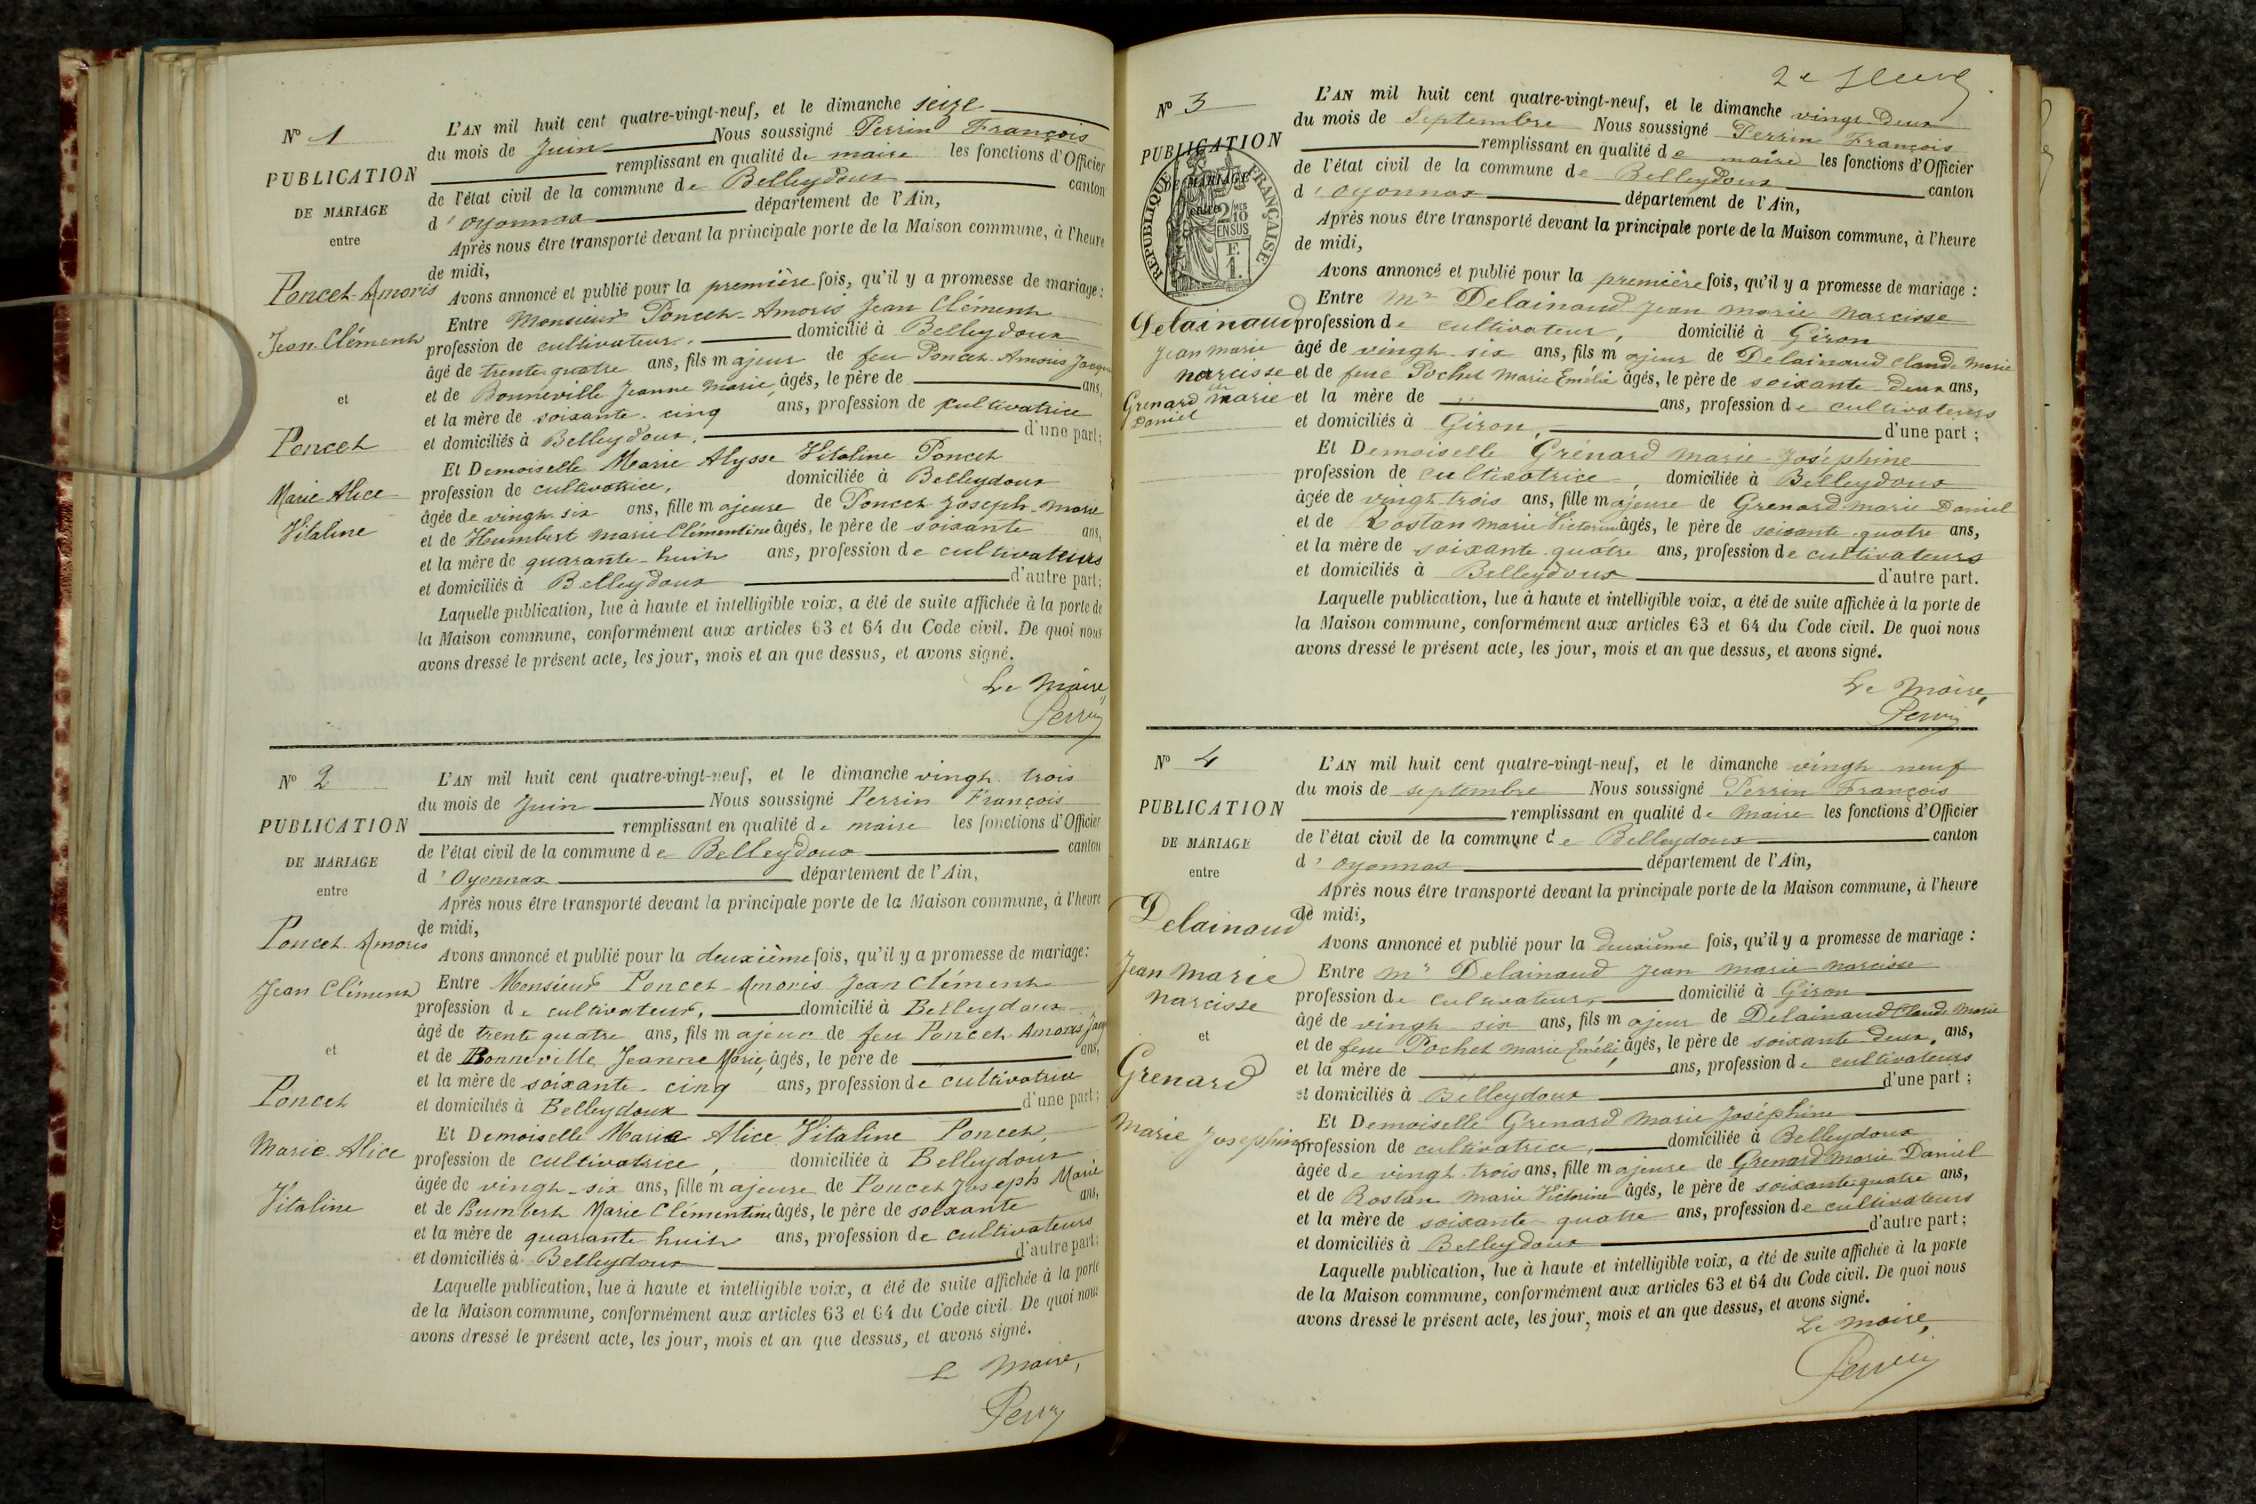 N° 1
PUBLICATION
DE MARIAGE
entre
Poncet-Amoris
Jean Clément
et
Poncet
Marie Alice
Vitaline
L'AN mil huit cent quatre-vingt-neuf, et le dimanche seize
du mois de Juin Nous soussigné Perrin François
remplissant en qualité de maire les fonctions d'Officier
de l'état civil de la commune de Belleydoux canton
d'Oyonnax département de l'Ain,
Après nous être transporté devant la principale porte de la Maison commune, à l'heure
de midi,
Avons annoncé et publié pour la première fois, qu'il y a promesse de mariage :
Entre Monsieur Poncet-Amoris Jean Clément
profession de cultivateur, domicilié à Belleydoux
âgé de trente quatre ans, fils majeur de feu Poncet Amoris Jacques
et de Bonneville Jeanne Marie, âgés, le père de ans,
et la mère de soixante-cinq ans, profession de cultivatrice
et domiciliés à Belleydoux, d'une part ;
Et Demoiselle Marie Alysse Vitaline Poncet
profession de cultivatrice, domiciliée à Belleydoux
âgée de vingt-six ans, fille majeure de Poncet Joseph-Marie
et de Humbert Marie Clémentine âgés, le père de soixante ans,
et la mère de quarante-huit ans, profession de cultivateurs
et domiciliés à Belleydoux d'autre part ;
Laquelle publication, lue à haute et intelligible voix, a été de suite affichée à la porte de
la Maison commune, conformément aux articles 63 et 64 du Code civil. De quoi nous
avons dressé le présent acte, les jour, mois et an que dessus, et avons signé.
Le Maire,
Perrin
N° 2
PUBLICATION
DE MARIAGE
entre
Poncet-Amoris
Jean Clément
et
Poncet
Marie-Alice
Vitaline
L'AN mil huit cent quatre-vingt-neuf, et le dimanche vingt-trois
du mois de Juin Nous soussigné Perrin François
remplissant en qualité de maire les fonctions d'Officier
de l'état civil de la commune de Belleydoux canton
d'Oyonnax département de l'Ain,
Après nous être transporté devant la principale porte de la Maison commune, à l'heure
de midi,
Avons annoncé et publié pour la deuxième fois, qu'il y a promesse de mariage :
Entre Monsieur Poncet-Amoris Jean Clément
profession de cultivateur, domicilié à Belleydoux
âgé de trente quatre ans, fils majeur de feu Poncet-Amoris Jacq
et de Bonneville Jeanne Marie, âgés, le père de ans,
et la mère de soixante-cinq ans, profession de cultivatrice
et domiciliés à Belleydoux d'une part ;
Et Demoiselle Marie Alice Vitaline Poncet,
profession de cultivatrice, domiciliée à Belleydoux
âgée de vingt-six ans, fille majeure de Poncet Joseph Marie
et de Humbert Marie Clémentine âgés, le père de soixante ans,
et la mère de quarante huit ans, profession de cultivateurs
et domiciliés à Belleydoux d'autre part ;
Laquelle publication, lue à haute et intelligible voix, a été de suite affichée à la porte
de la Maison commune, conformément aux articles 63 et 64 du Code civil. De quoi nous
avons dressé le présent acte, les jour, mois et an que dessus, et avons signé.
Le Maire,
Perrin
2e
N° 3
PUBLICATION
DE MARIAGE
entre
REPUBLIQUE FRANÇAISE
2/10 EN SUS
F.
1.
Delainaud
Jean Marie
Narcisse
et
Grenard Marie
Daniel
L'AN mil huit cent quatre-vingt-neuf, et le dimanche vingt-deux
du mois de Septembre Nous soussigné Perrin François
remplissant en qualité de maire les fonctions d'Officier
de l'état civil de la commune de Belleydoux canton
d'Oyonnax département de l'Ain,
Après nous être transporté devant la principale porte de la Maison commune, à l'heure
de midi,
Avons annoncé et publié pour la première fois, qu'il y a promesse de mariage :
Entre Mr Delainaud Jean Marie Narcisse
profession de cultivateur, domicilié à Giron
âgé de vingt-six ans, fils majeur de Delainaud Claude Marie
et de feue Pochet Marie Emélie âgés, le père de soixante-deux ans,
et la mère de ans, profession de cultivateurs
et domiciliés à Giron, d'une part ;
Et Demoiselle Grénard Marie-Joséphine
profession de cultivatrice, domiciliée à Belleydoux
âgée de vingt-trois ans, fille majeure de Grenard Marie Daniel
et de Rostan Marie Victorine âgés, le père de soixante-quatre ans,
et la mère de soixante-quatre ans, profession de cultivateurs
et domiciliés à Belleydoux d'autre part.
Laquelle publication, lue à haute et intelligible voix, a été de suite affichée à la porte de
la Maison commune, conformément aux articles 63 et 64 du Code civil. De quoi nous
avons dressé le présent acte, les jour, mois et an que dessus, et avons signé.
Le Maire,
Perrin
N° 4
PUBLICATION
DE MARIAGE
entre
Delainaud
Jean Marie
Narcisse
et
Grenard
Marie Josephine
L'AN mil huit cent quatre-vingt-neuf, et le dimanche vingt-neuf
du mois de septembre Nous soussigné Perrin François
remplissant en qualité de Maire les fonctions d'Officier
de l'état civil de la commune de Belleydoux canton
d'Oyonnax département de l'Ain,
Après nous être transporté devant la principale porte de la Maison commune, à l'heure
de midi,
Avons annoncé et publié pour la deuxième fois, qu'il y a promesse de mariage :
Entre Mr Delainaud Jean Marie Narcisse
profession de cultivateur, domicilié à Giron
âgé de vingt-six ans, fils majeur de Delainaud Claude Marie
et de feue Pochet Marie Emélie, âgés, le père de soixante-deux, ans,
et la mère de ans, profession de cultivateurs
et domiciliés à Belleydoux d'une part ;
Et Demoiselle Grenard Marie Joséphine
profession de cultivatrice, domiciliée à Belleydoux
âgée de vingt-trois ans, fille majeure de Grenard Marie Daniel
et de Rostan Marie Victorine âgés, le père de soixante-quatre ans,
et la mère de soixante-quatre ans, profession de cultivateurs
et domiciliés à Belleydoux d'autre part ;
Laquelle publication, lue à haute et intelligible voix, a été de suite affichée à la porte
de la Maison commune, conformément aux articles 63 et 64 du Code civil. De quoi nous
avons dressé le présent acte, les jour, mois et an que dessus, et avons signé.
Le Maire,
Perrin